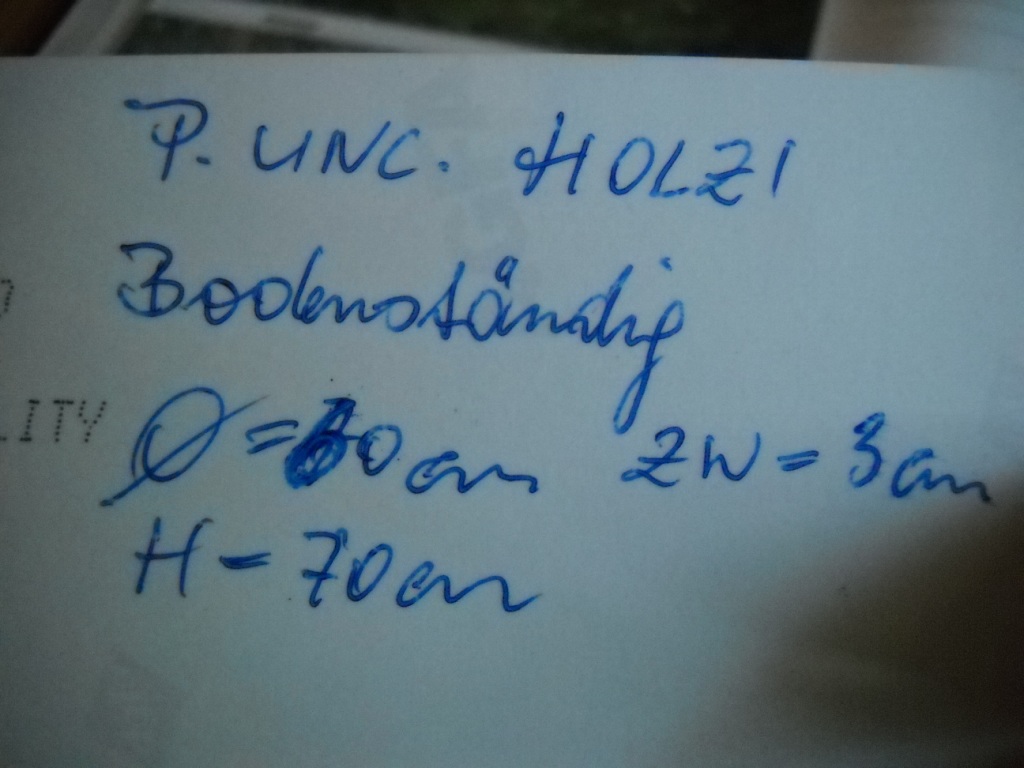 P. UNC. HOLZI
Bodenständig
LITY Ø = 60 cm ZW = 3 cm
H = 70 cm